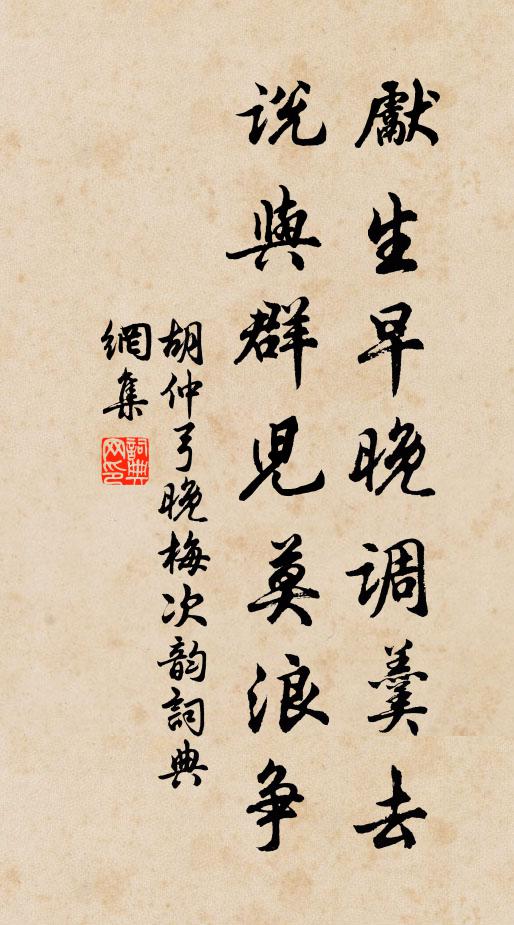 獻生早晚調羹去
說與群兒莫浪爭
胡仲弓晚梅次韵詞典
網集
詞典網印